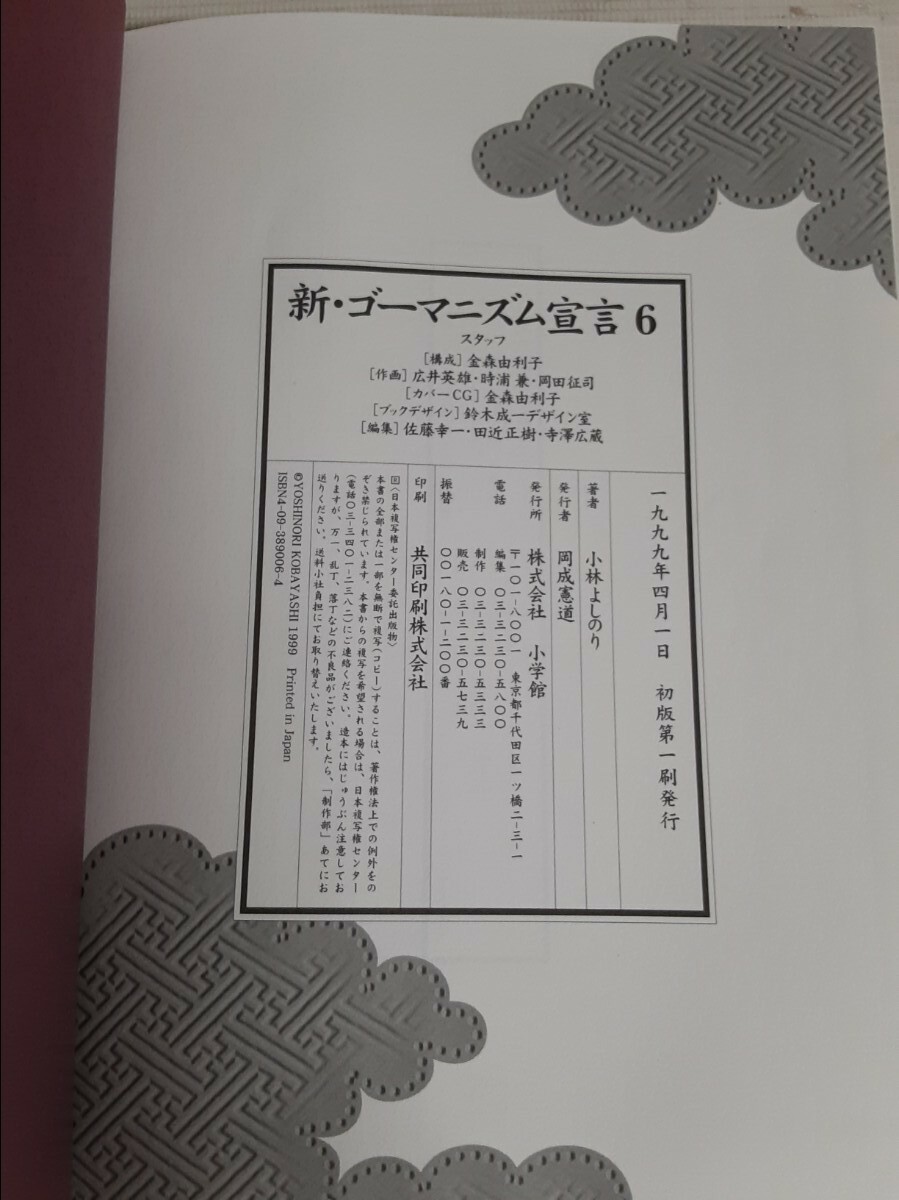 新・ゴーマニズム宣言 6
スタッフ
[構成] 金森由利子
[作画] 広井英雄・時浦 兼・岡田征司
[カバーCG] 金森由利子
[ブックデザイン] 鈴木成一デザイン室
[編集] 佐藤幸一・田近正樹・寺澤広蔵
一九九九年四月一日 初版第一刷発行
著者 小林よしのり
発行者 岡成憲道
発行所 株式会社 小学館
〒一〇一-八〇〇一 東京都千代田区一ツ橋二-三-一
電話 編集 〇三-三二三〇-五八〇〇
制作 〇三-三二三〇-五三三三
販売 〇三-三二三〇-五七三九
振替 〇〇一八〇-一-二〇〇番
印刷 共同印刷株式会社
〈日本複写権センター委託出版物〉
本書の全部または一部を無断で複写(コピー)することは、著作権法上での例外をの
ぞき禁じられています。本書からの複写を希望される場合は、日本複写権センター
(電話〇三-三四〇一-二三八二)にご連絡ください。造本にはじゅうぶん注意してお
りますが、万一、乱丁、落丁などの不良品がございましたら、「制作部」あてにお
送りください。送料小社負担にてお取り替えいたします。
©YOSHINORI KOBAYASHI 1999 Printed in Japan
ISBN4-09-389006-4